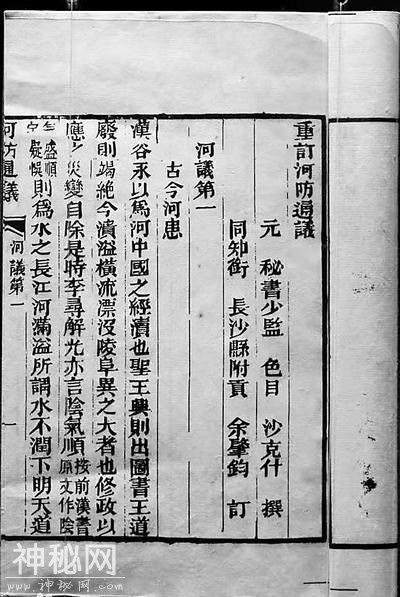 重訂河防通議
元 秘書少監 色目 沙克什 撰
同知銜 長沙縣附貢 余肇鈞 訂
河議第一
古今河患
漢谷永以爲河中國之經瀆也聖王興則出圖書王道
廢則竭絕今潰溢橫流漂沒陵阜異之大者也修政以
應之災變自除是時李尋解光亦言陰氣順按前漢書原文作陰
盛順疑悞則爲水之長江河滿溢所謂水不潤下明天道
河防通議 河議第一 一
神秘网
www.神秘网.com